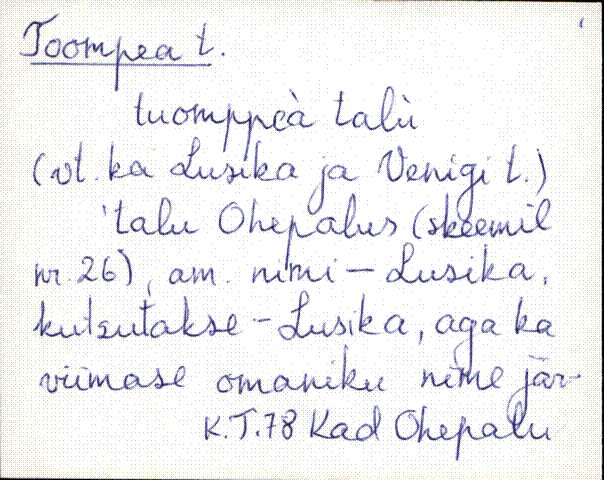 Toompea t.
tuomppeà talù
(vt. ka Lusika ja Venigi t.)
'talu Ohepalus (skeemil
nr. 26), am. nimi – Lusika,
kutsutakse – Lusika, aga ka
viimase omaniku nime jär-
K.T.78 Kad Ohepalu